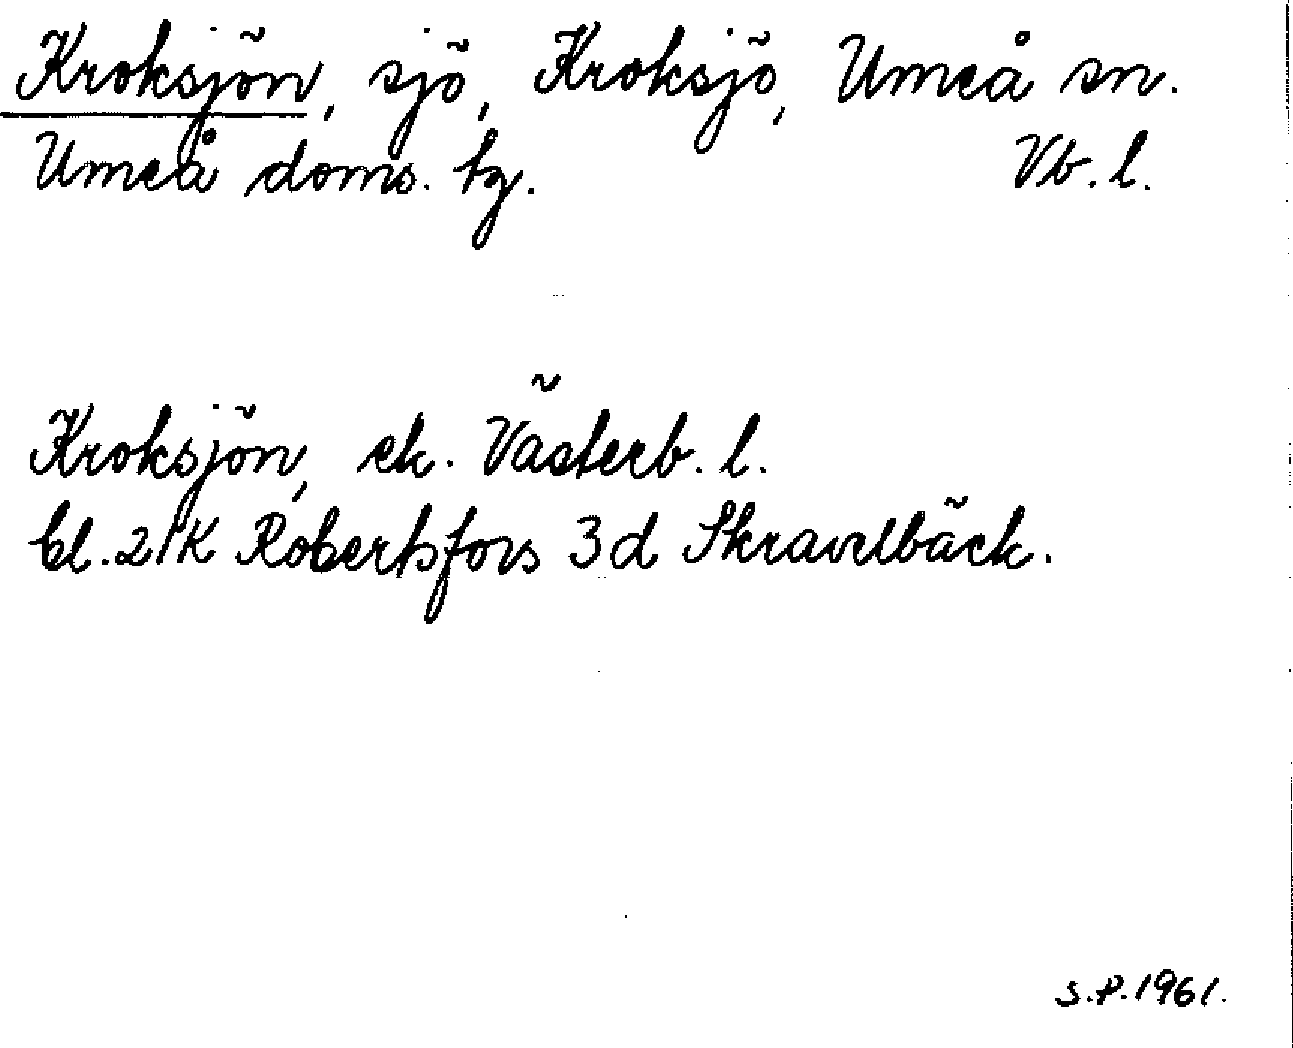 Kroksjön, sjö, Kroksjö, Umeå sn.
Umeå doms. tg. Vb. l.
Kroksjön, ek. Västerb. l.
bl. 21K Robertsfors 3d Skravelbäck.
S.P. 1961.